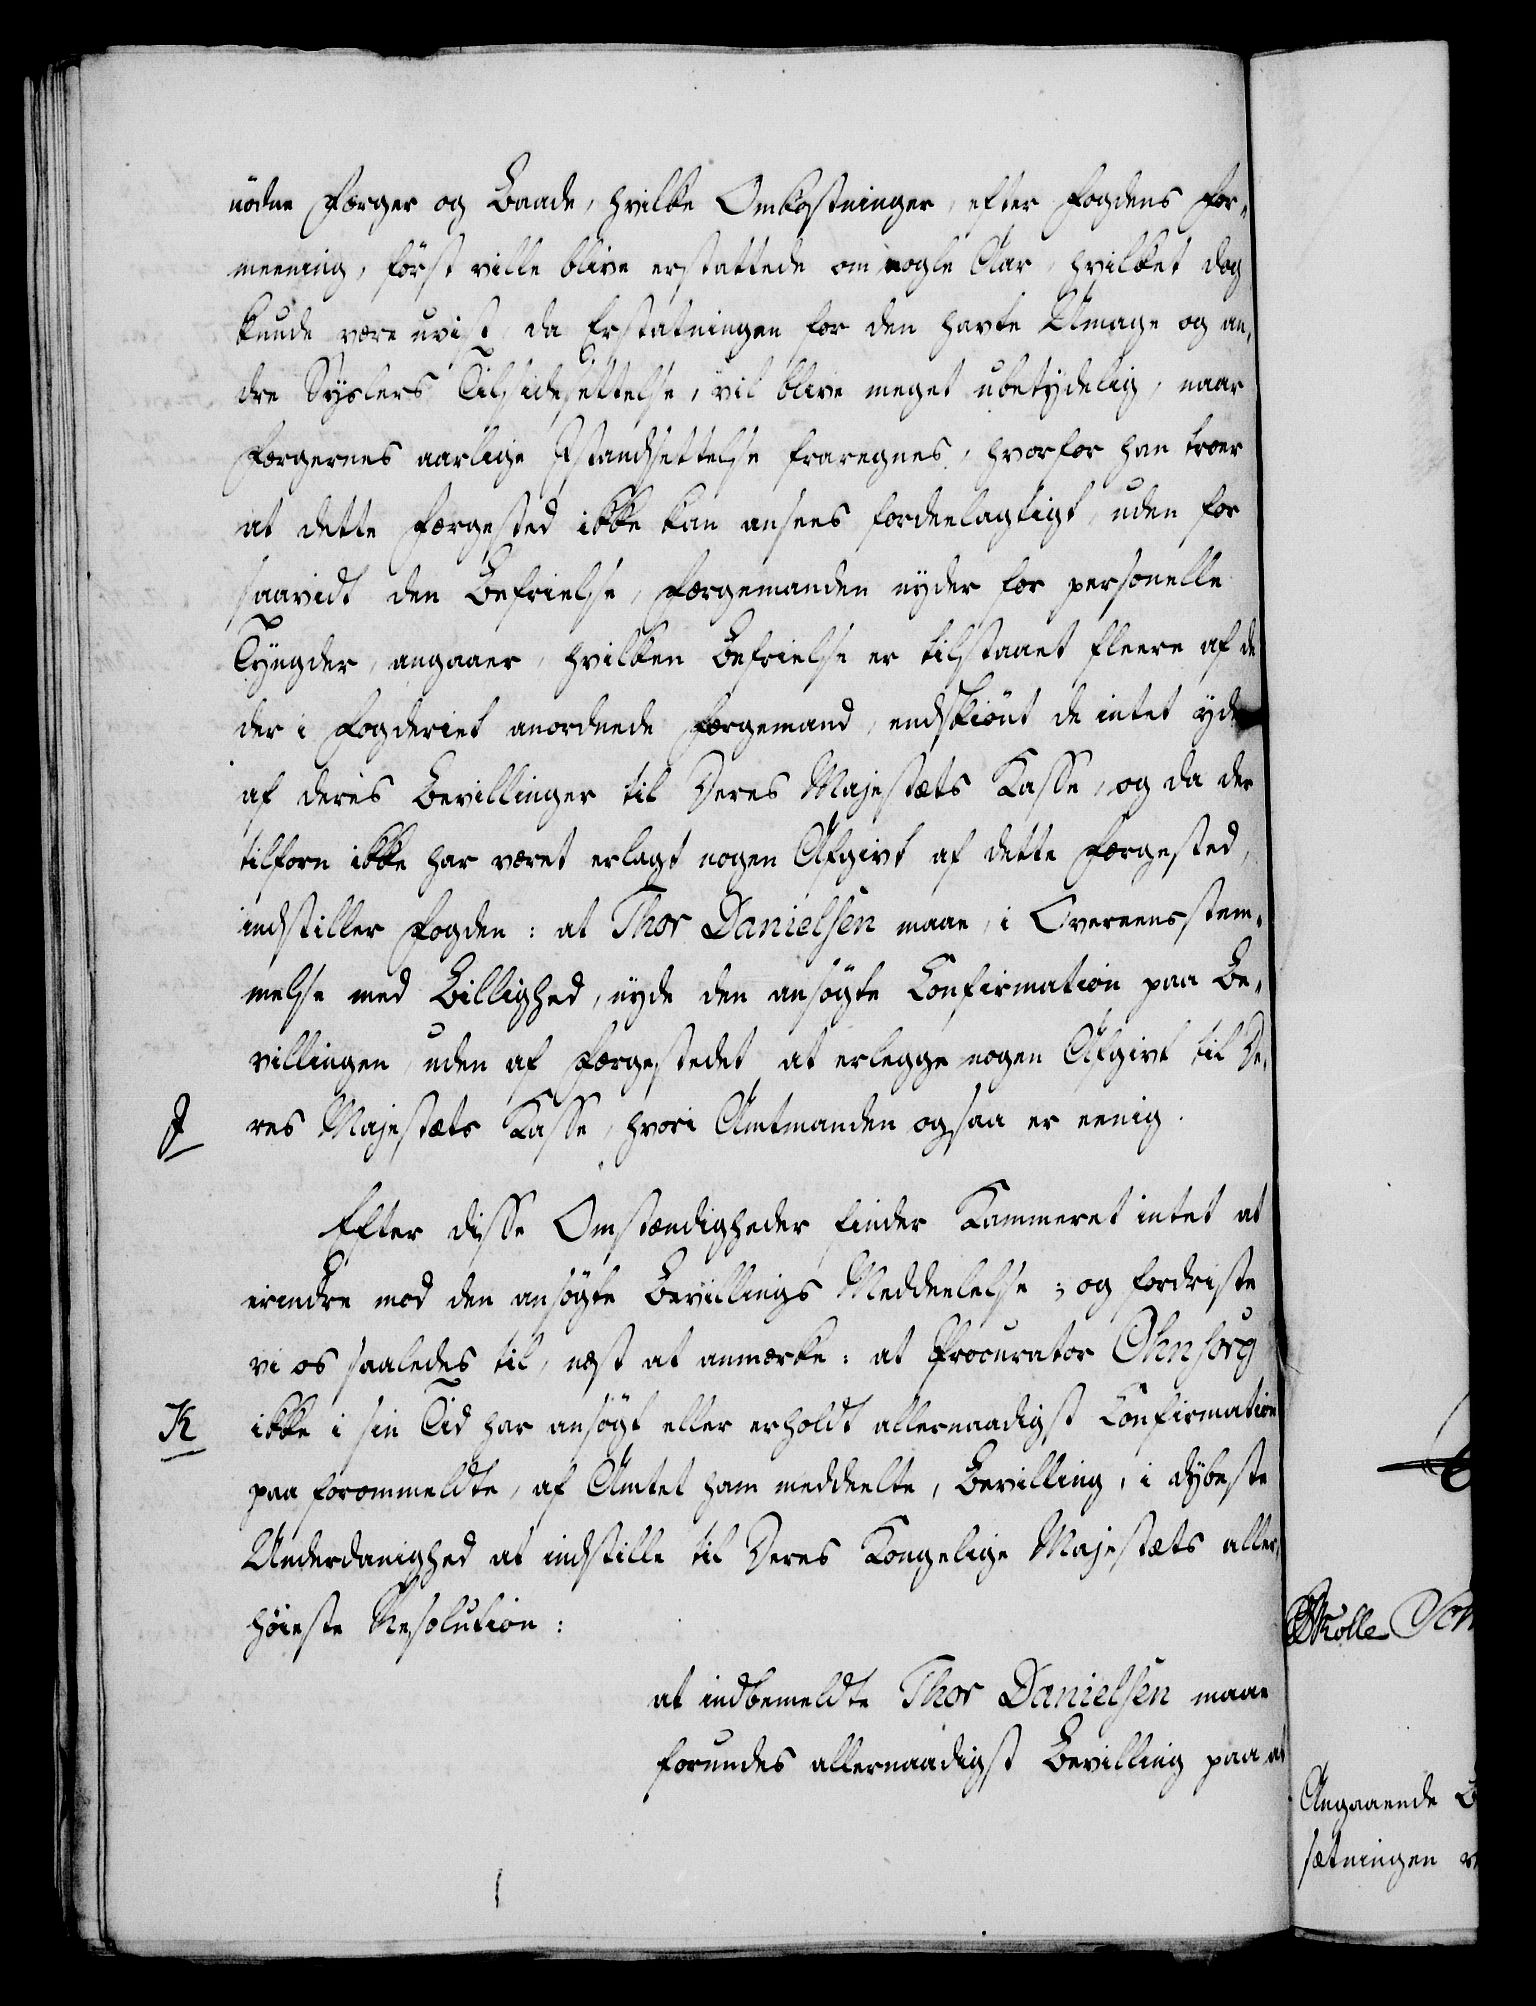 nödne Færger og Baade, hvilke Omkostninger, efter Fogdens For-
meening, först ville blive erstattede om nogle Aar, hvilket dog
kunde være uvist, da Erstatningen for den havte Umage og an-
dre Syslers Tilsidesettelse, vil blive meget ubetydelig, naar
Færgernes aarlige Istandsettelse fraregnes, hvorfor han troer
at dette Færgested ikke kan ansees fordeelagtigt, uden for
saavidt den Befrielse, Færgemanden nyder for personelle
Tyngder, angaaer, hvilken Befrielse er tilstaaet fleere af de
der i Fogderiet anordnede Færgemænd, endskiönt de intet yde
af deres Bevillinger til Deres Majestæts Kasse, og da der
tilforn ikke har været erlagt nogen Afgivt af dette Færgested,
indstiller Fogden: at Thor Danielsen maae, i Overeensstem-
melse med Billighed, nyde den ansögte Confirmation paa Be-
villingen, uden af Færgestedet at erlegge nogen Afgivt til De-
J res Majestæts Kasse, hvori Amtmanden ogsaa er eenig.
Efter disse Omstændigheder finder Kammeret intet at
erindre mod den ansögte Bevillings Meddeelelse; og fordriste
vi os saaledes til, næst at anmærke: at Procurator Ohnsorg
K ikke i sin Tid har ansögt eller erholdt allernaadigst Confirmation
paa forommeldte, af Amtet ham meddeelte, Bevilling, i dybeste
Underdanighed at indstille til Deres Kongelige Majestæts aller-
höieste Resolution:
at indbemeldte Thor Danielsen maae
forundes allernaadigst Bevilling paa at
Angaaende
sætningen